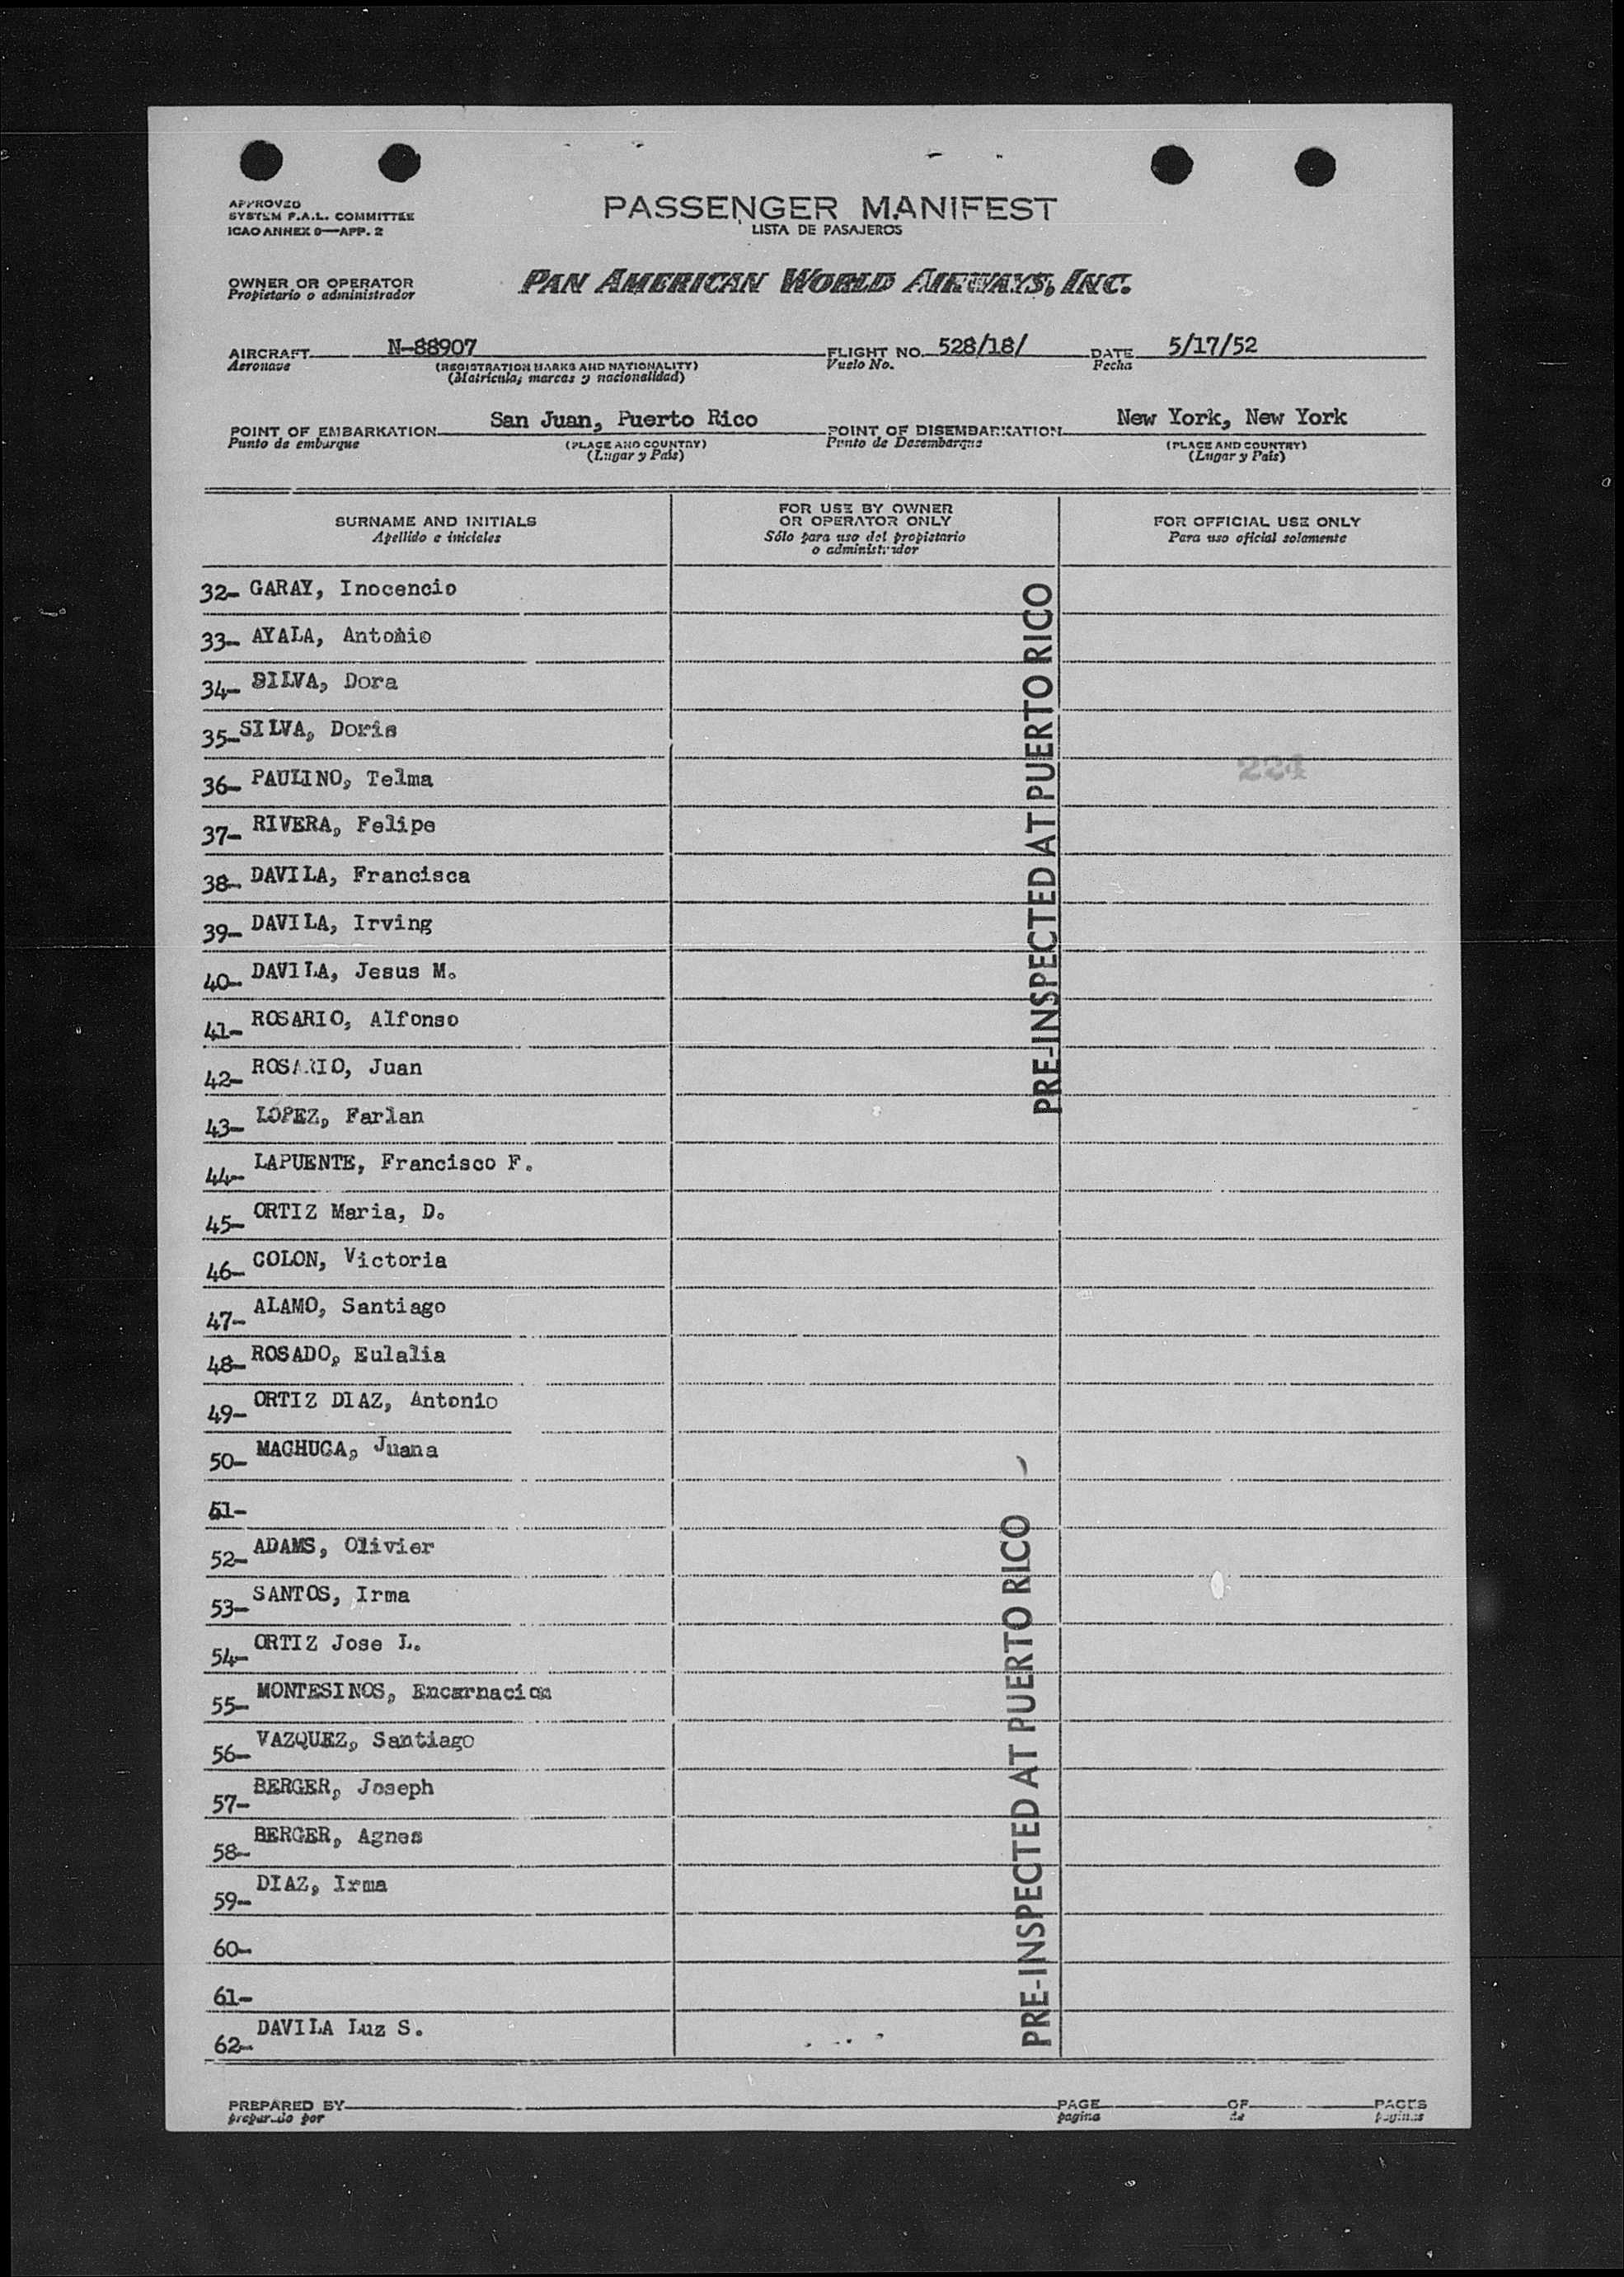 APPROVED
SYSTEM F.A.L. COMMITTEE
ICAO ANNEX 9—APP. 2
PASSENGER MANIFEST
LISTA DE PASAJEROS
OWNER OR OPERATOR
Propietario o administrador
PAN AMERICAN WORLD AIRWAYS, INC.
AIRCRAFT N-88907 FLIGHT NO. 528/18/ DATE 5/17/52
Aeronave (REGISTRATION MARKS AND NATIONALITY) Vuelo No. Fecha
(Matricula, marcas y nacionalidad)
POINT OF EMBARKATION San Juan, Puerto Rico POINT OF DISEMBARKATION New York, New York
Punto de embarque (PLACE AND COUNTRY) Punto de Desembarque (PLACE AND COUNTRY)
(Lugar y País) (Lugar y País)
SURNAME AND INITIALS
Apellido e iniciales
FOR USE BY OWNER
OR OPERATOR ONLY
Sólo para uso del propietario
o administrador
FOR OFFICIAL USE ONLY
Para uso oficial solamente
32- GARAY, Inocencio
33- AYALA, Antonio
34- SILVA, Dora
35- SILVA, Doris
36- PAULINO, Telma
37- RIVERA, Felipe
38- DAVILA, Francisca
39- DAVILA, Irving
40- DAVILA, Jesus M.
41- ROSARIO, Alfonso
42- ROSARIO, Juan
43- LOPEZ, Farlan
44- LAPUENTE, Francisco F.
45- ORTIZ Maria, D.
46- COLON, Victoria
47- ALAMO, Santiago
48- ROSADO, Eulalia
49- ORTIZ DIAZ, Antonio
50- MACHUCA, Juana
51-
52- ADAMS, Olivier
53- SANTOS, Irma
54- ORTIZ Jose L.
55- MONTESINOS, Encarnacion
56- VAZQUEZ, Santiago
57- BERGER, Joseph
58- BERGER, Agnes
59- DIAZ, Irma
60-
61-
62- DAVILA Luz S.
PRE-INSPECTED AT PUERTO RICO
PRE-INSPECTED AT PUERTO RICO
224
PREPARED BY PAGE OF PAGES
preparado por pagina de paginas